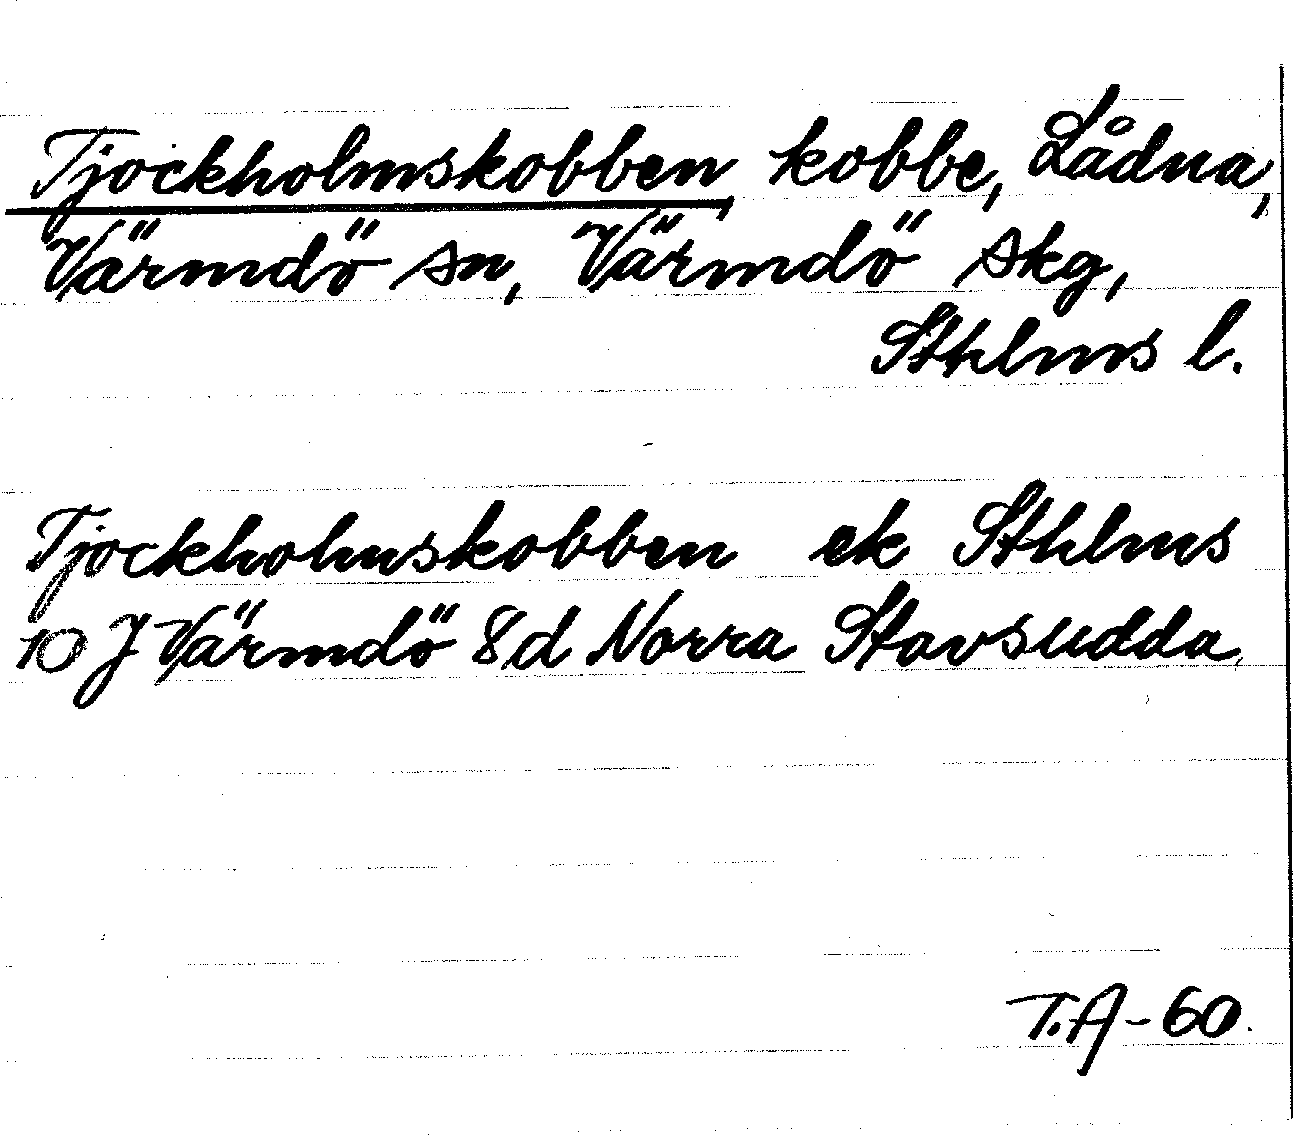 Tjockholmskobben, kobbe, Lådna,
Värmdö sn, Värmdö skg,
Sthlms l.
Tjockholmskobben ek Sthlms
10 J Värmdö 8d Norra Stavsudda.
T.A-60.